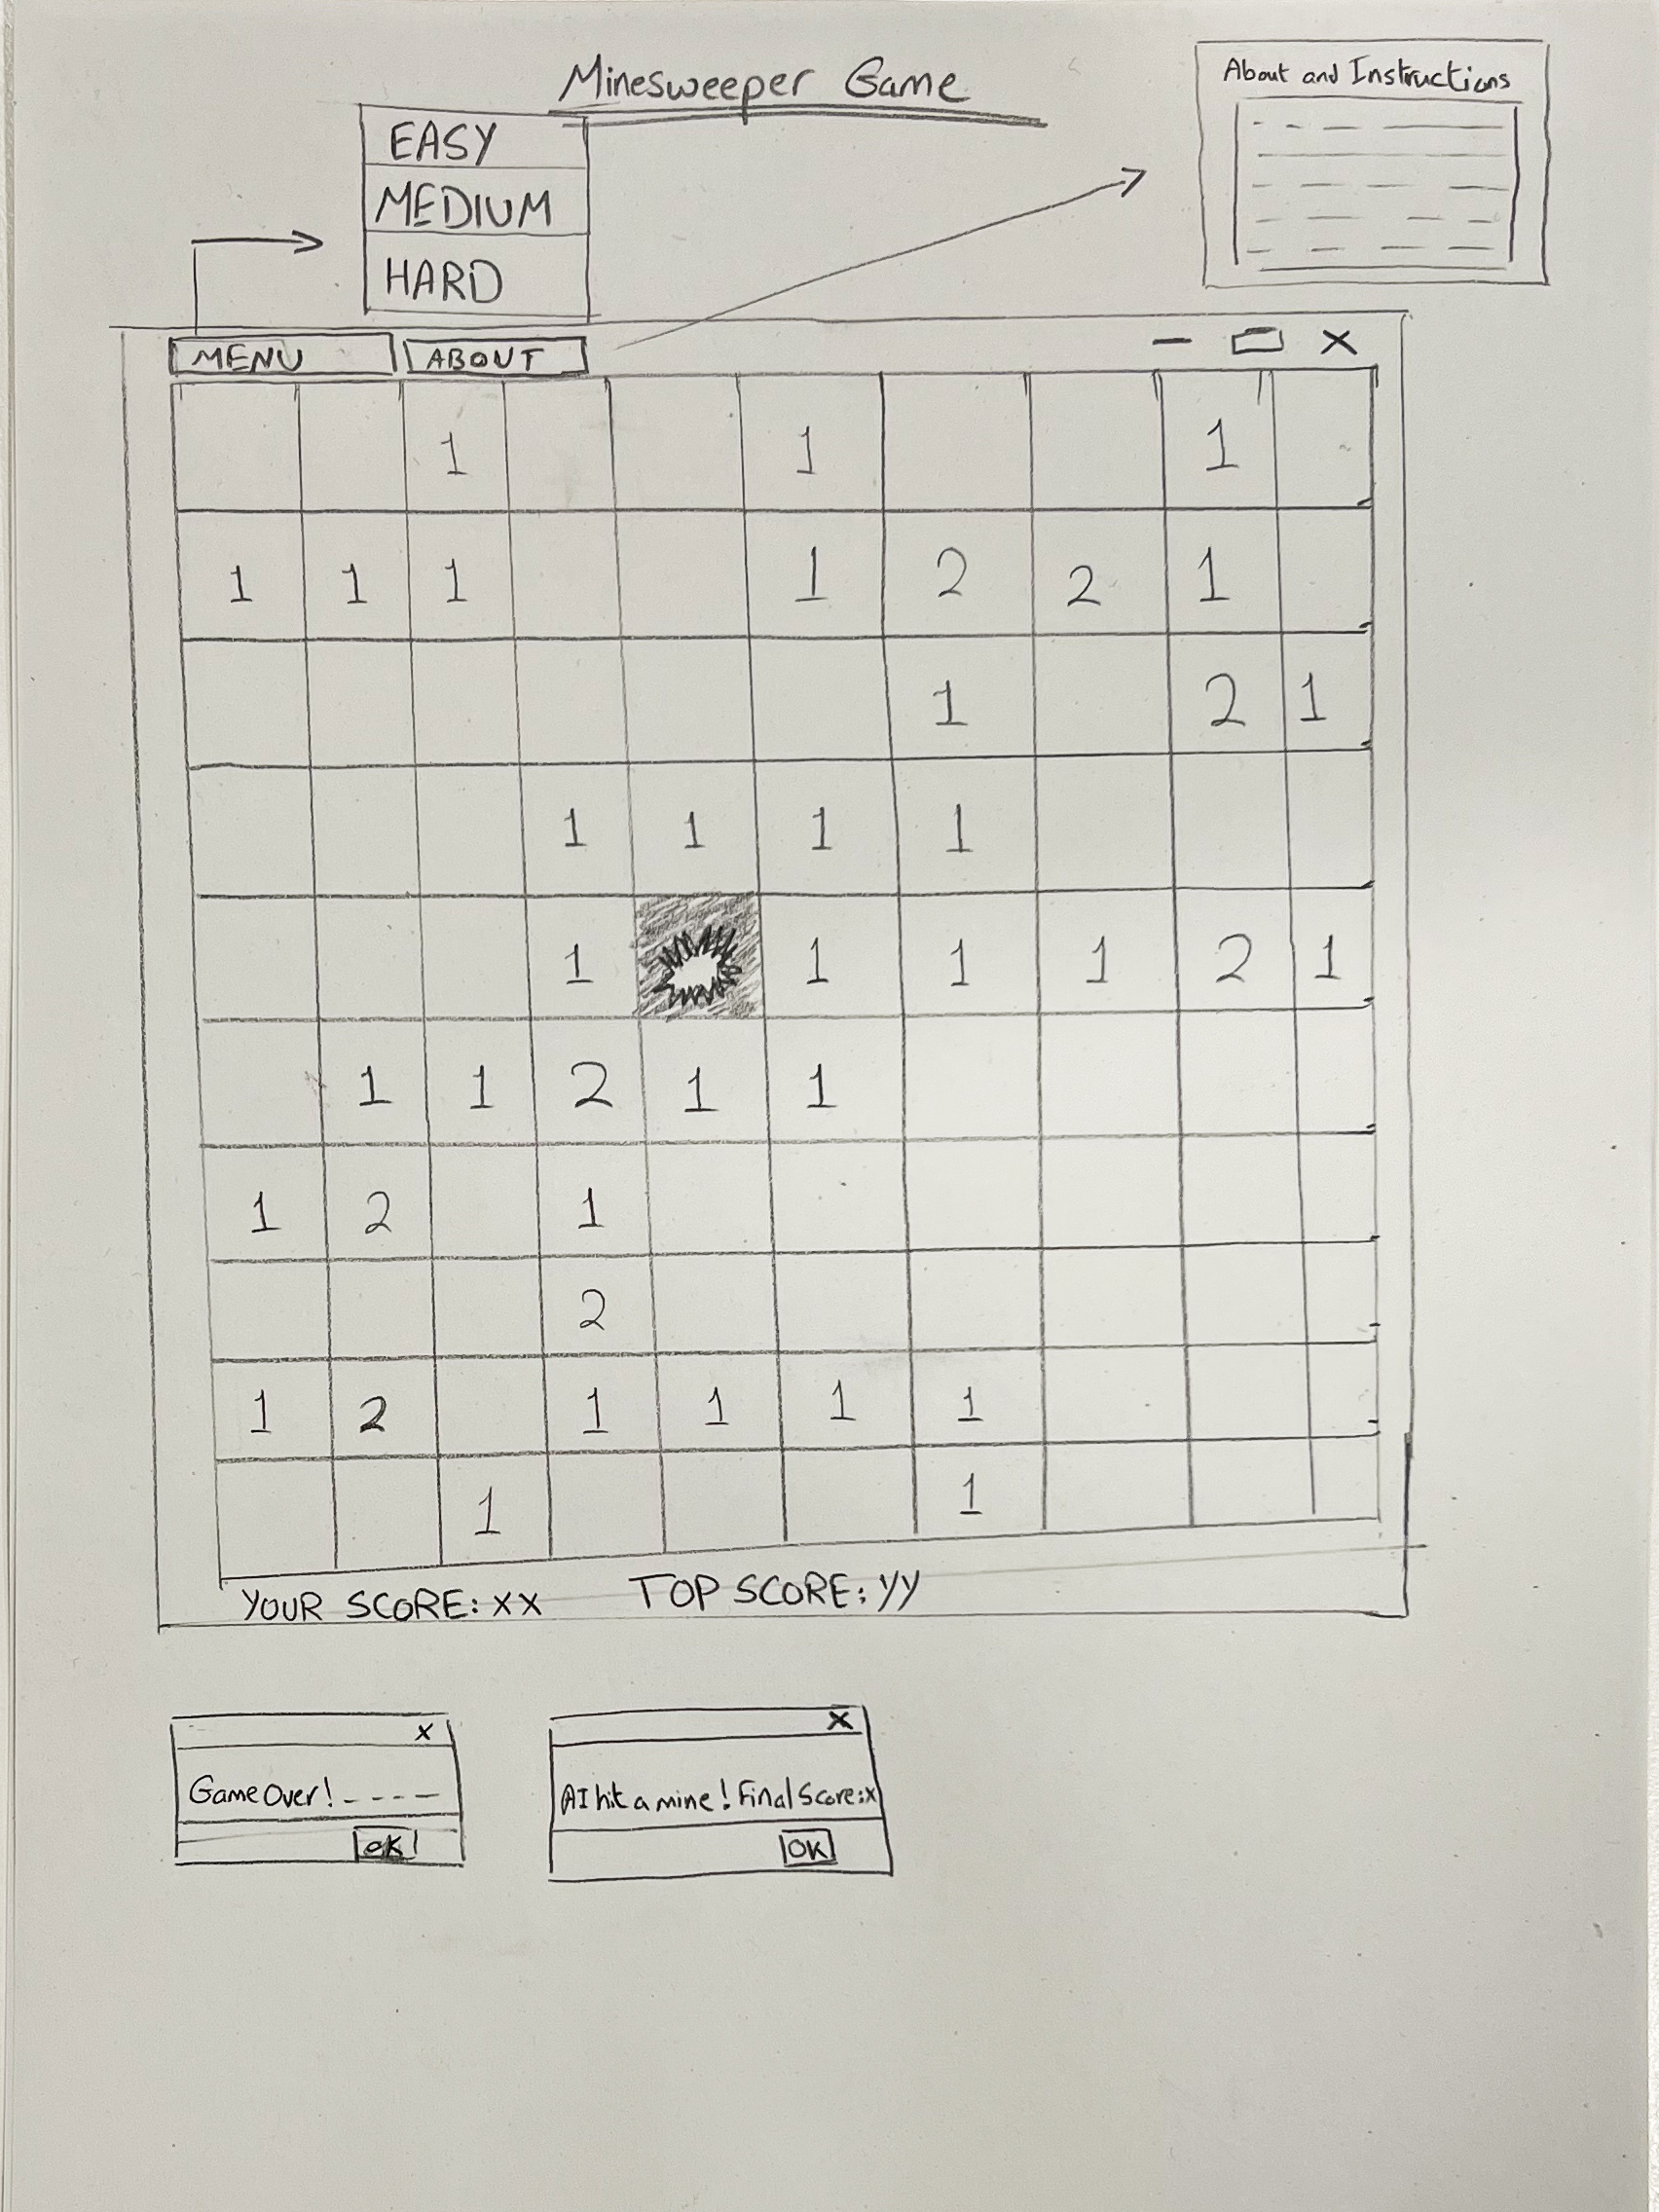 Minesweeper Game
About and Instructions
EASY
MEDIUM
HARD
MENU ABOUT – X
1 1 1
1 1 1 1 2 2 1
1 2 1
1 1 1 1
1 1 1 1 2 1
1 1 2 1 1
1 2 1
2
1 2 1 1 1 1
1 1
YOUR SCORE: XX TOP SCORE: YY
X
Game Over! - - - -
OK
X
AI hit a mine! Final Score:x
OK